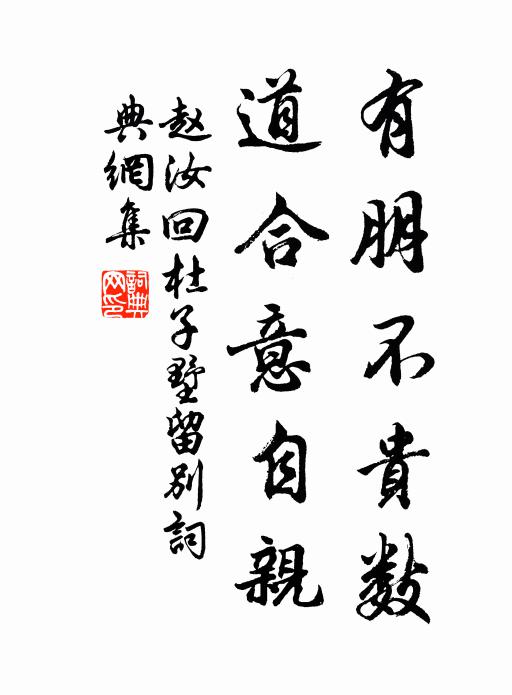 有朋不貴数
道合意自親
赵汝回杜子墅留别詞
典網集
詞典
网印